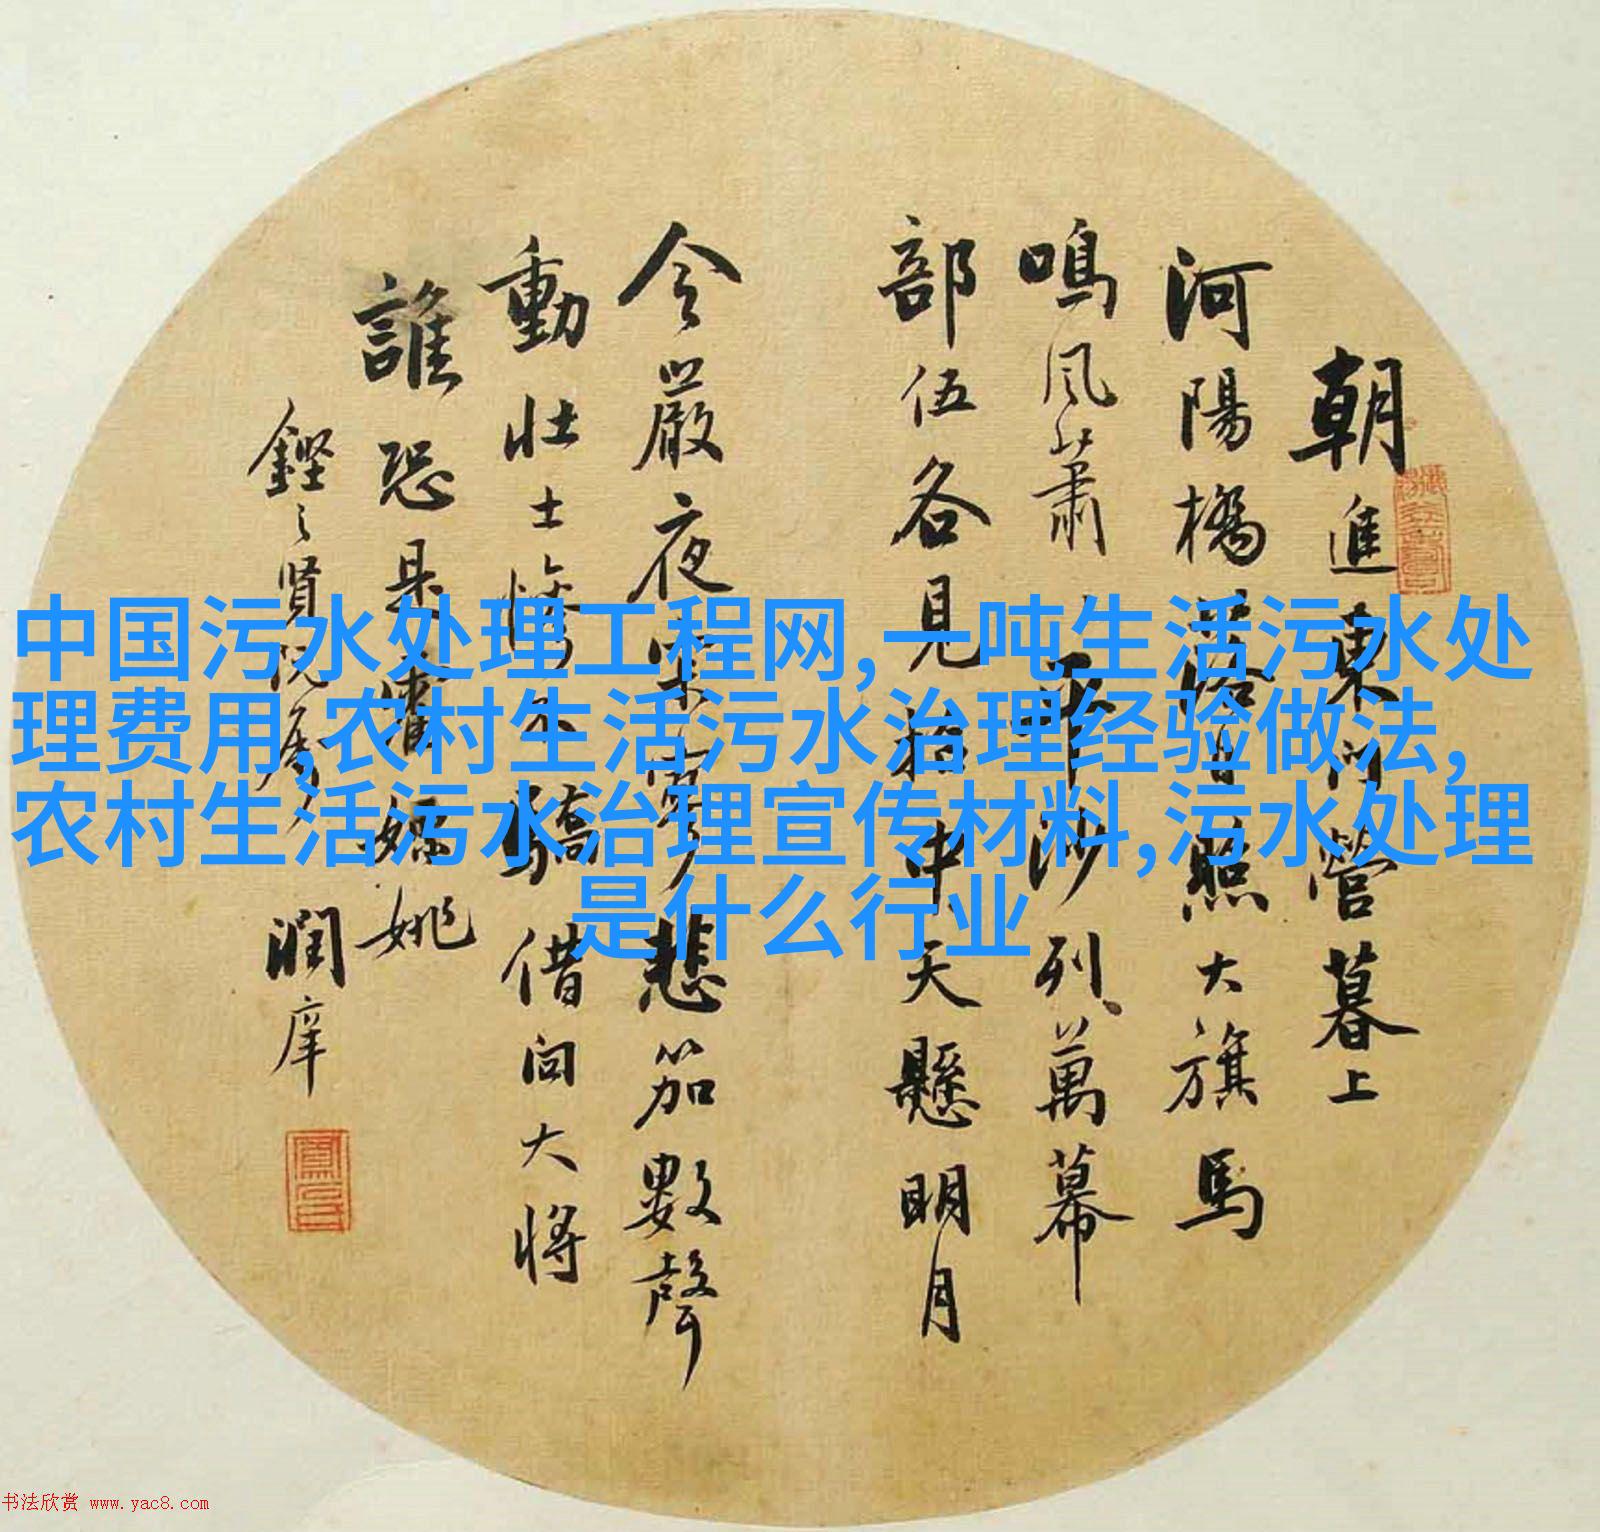 朝進東門營暮上
河陽橋落日照大旗馬
鳴風蕭〻平沙列萬幕
部伍各見招中天懸明月
令嚴夜寂寥悲笳數聲
動壯士慘不驕借問大將
誰恐是霍嫖姚
鏗〻賢屬 潤庠
中国污水处理工程网,一吨生活污水处
理费用,农村生活污水治理经验做法,
农村生活污水治理宣传材料,污水处理
是什么行业
书法欣赏 www.yac8.com